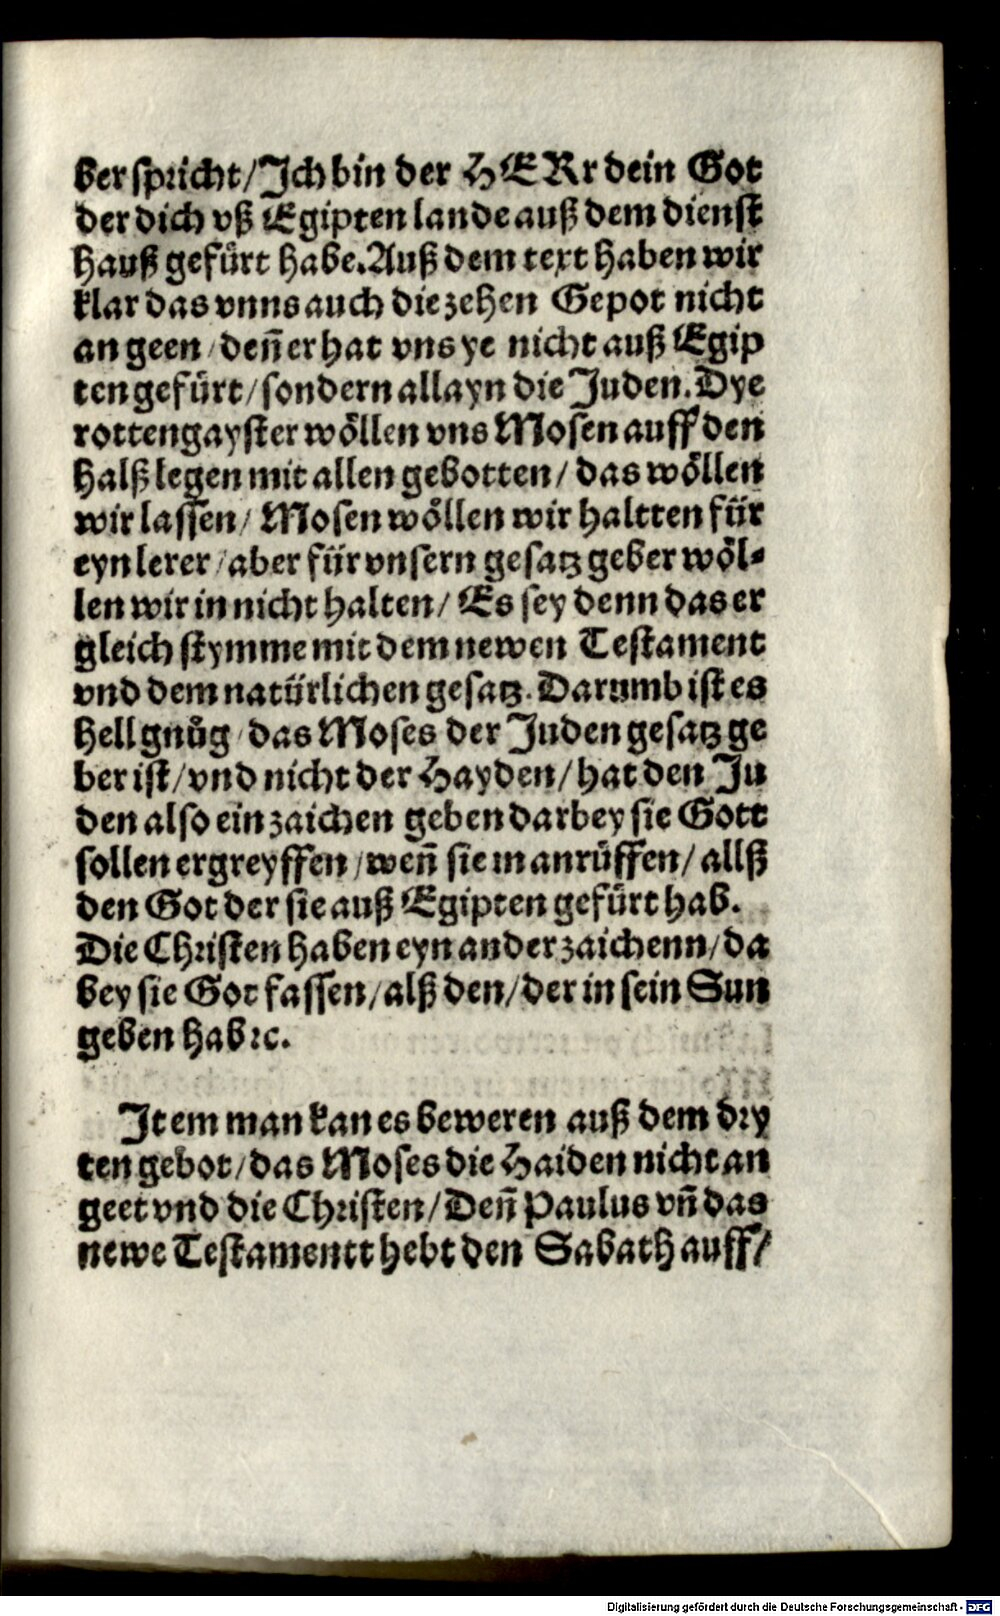 ber spricht/ Ich bin der HERr dein Got
der dich vß Egipten lande auß dem dienst
hauß gefürt habe. Auß dem text haben wir
klar das vnns auch die zehen Gepot nicht
an geen/ deñ er hat vns ye nicht auß Egip
ten gefürt/ sondern allayn die Juden. Dye
rottengayster wöllen vns Mosen auff den
halß legen mit allen gebotten/ das wöllen
wir lassen/ Mosen wöllen wir haltten für
eyn lerer/ aber für vnsern gesatz geber wöl⸗
len wir in nicht halten/ Es sey denn das er
gleich stymme mit dem newen Testament
vnd dem natürlichen gesatz. Darumb ist es
hell gnůg/ das Moses der Juden gesatz ge
ber ist/ vnd nicht der Hayden/ hat den Ju
den also ein zaichen geben darbey sie Gott
sollen ergreyffen/ weñ sie in anrůffen/ allß
den Got der sie auß Egipten gefürt hab.
Die Christen haben eyn ander zaichenn/ da
bey sie Got fassen/ alß den/ der in sein Sun
geben hab ꝛc.
Item man kan es beweren auß dem dry
ten gebot/ das Moses die Haiden nicht an
geet vnd die Christen/ Deñ Paulus vñ das
newe Testamentt hebt den Sabath auff/
Digitalisierung gefördert durch die Deutsche Forschungsgemeinschaft - DFG